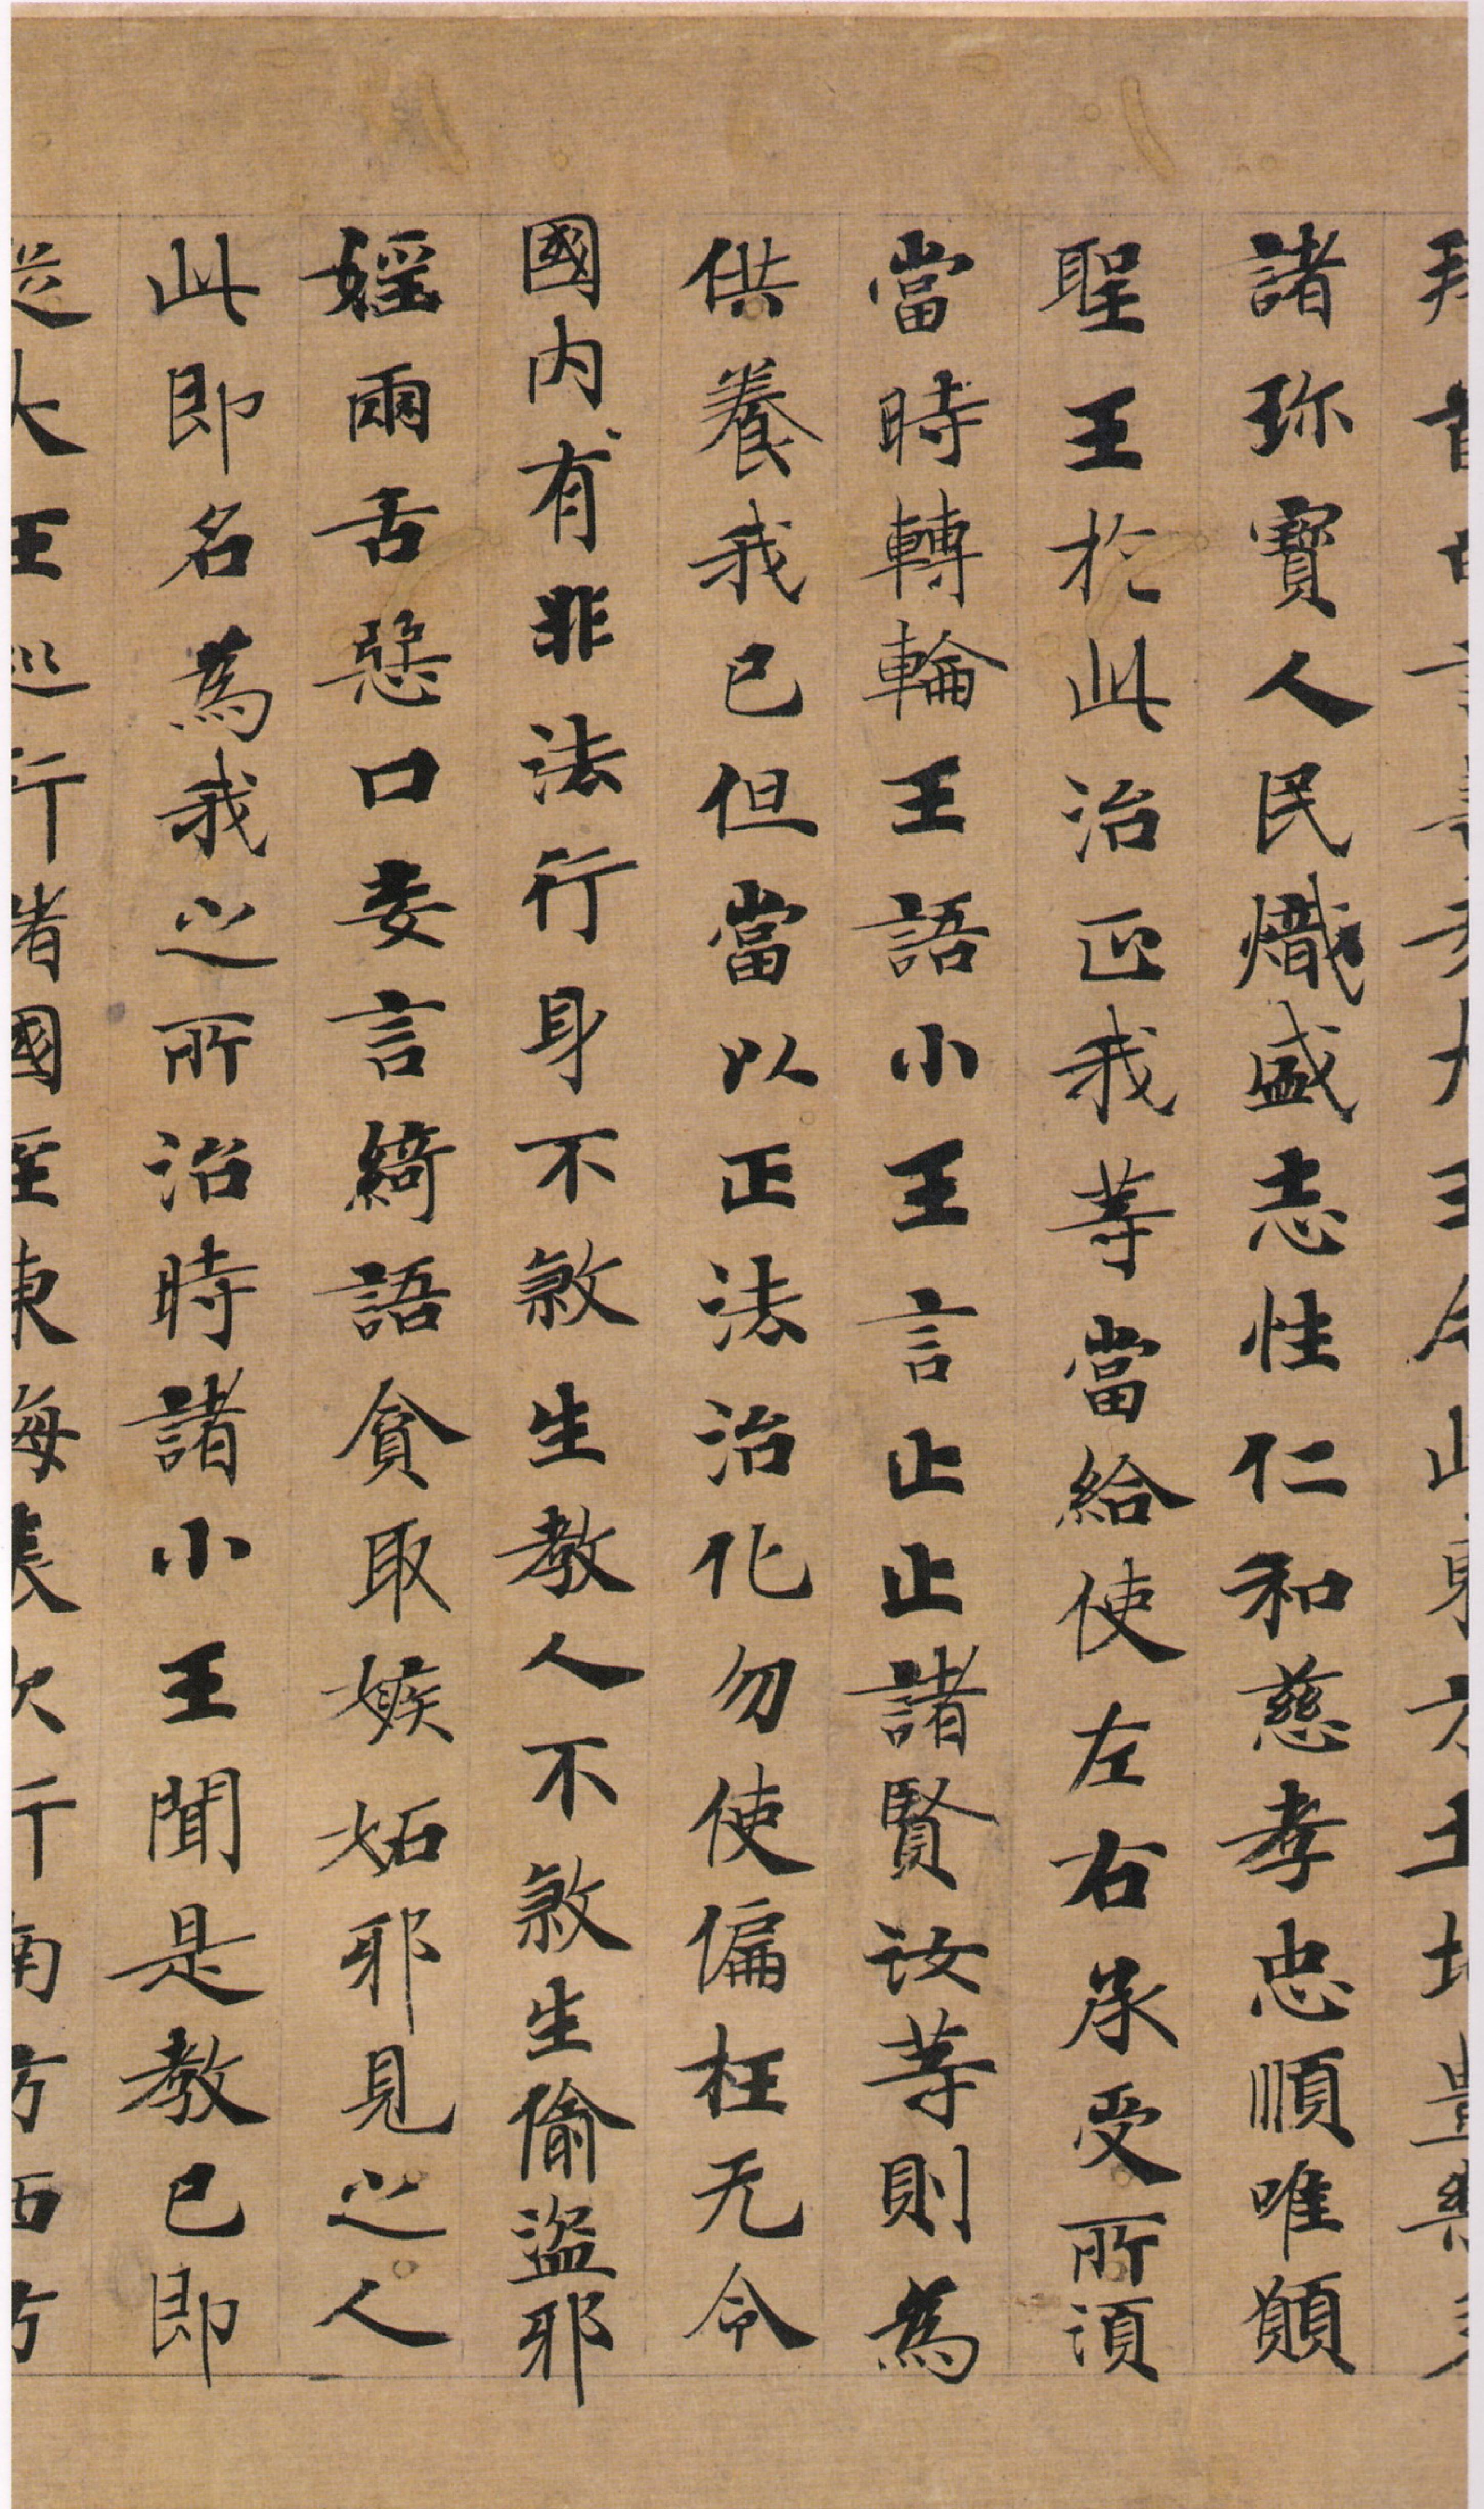 諸珎寶人民熾盛志性仁和慈孝忠順唯願
聖王於此治正我等當給使左右承受所須
當時轉輪王語小王言止止諸賢汝等則為
供養我已但當以正法治化勿使偏枉无令
國內有非法行身不煞生教人不煞生偷盜耶
婬兩舌惡口妄言綺語貪取嫉妬耶見之人
此即名為我之所治時諸小王聞是教已即
從大王巡行諸國至東海表次行南方西方